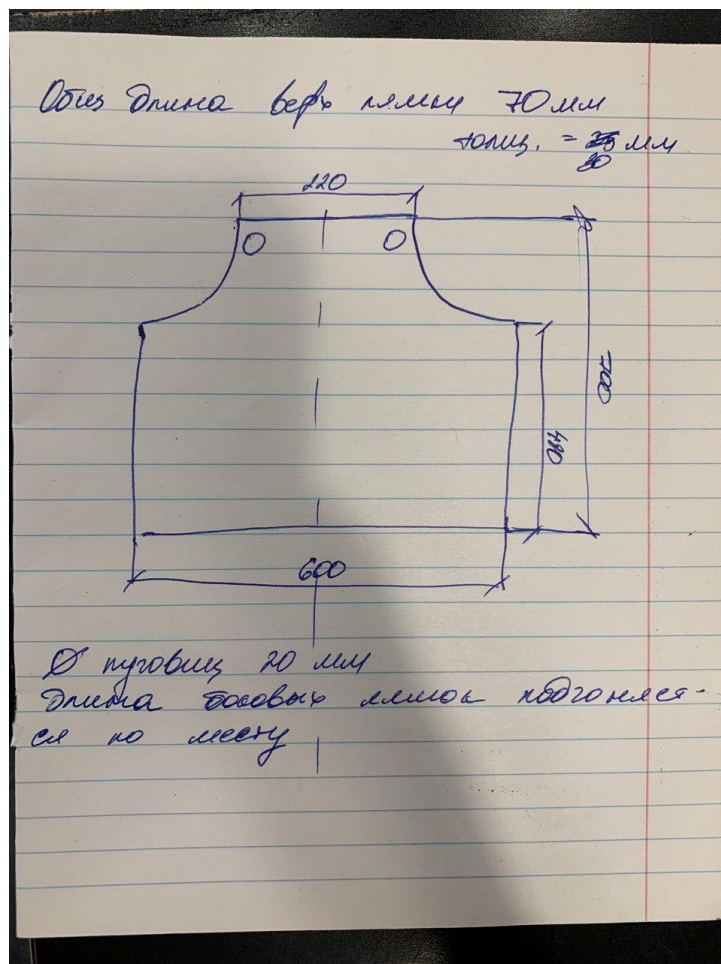 Общ длина верх лямки 70 мм
толщ. = мм
30
220
700
490
600
Ø пуговиц 20 мм
Длина боковых лямок подгоняет-
ся по месту